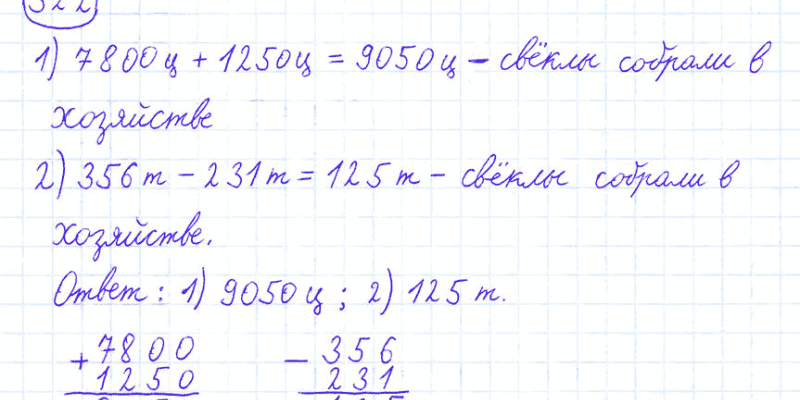 322
1) 7800ц + 1250ц = 9050ц – свёклы собрали в
хозяйстве
2) 356т – 231т = 125т – свёклы собрали в
хозяйстве.
Ответ: 1) 9050ц; 2) 125т.
+ 7800 – 356
1250 231